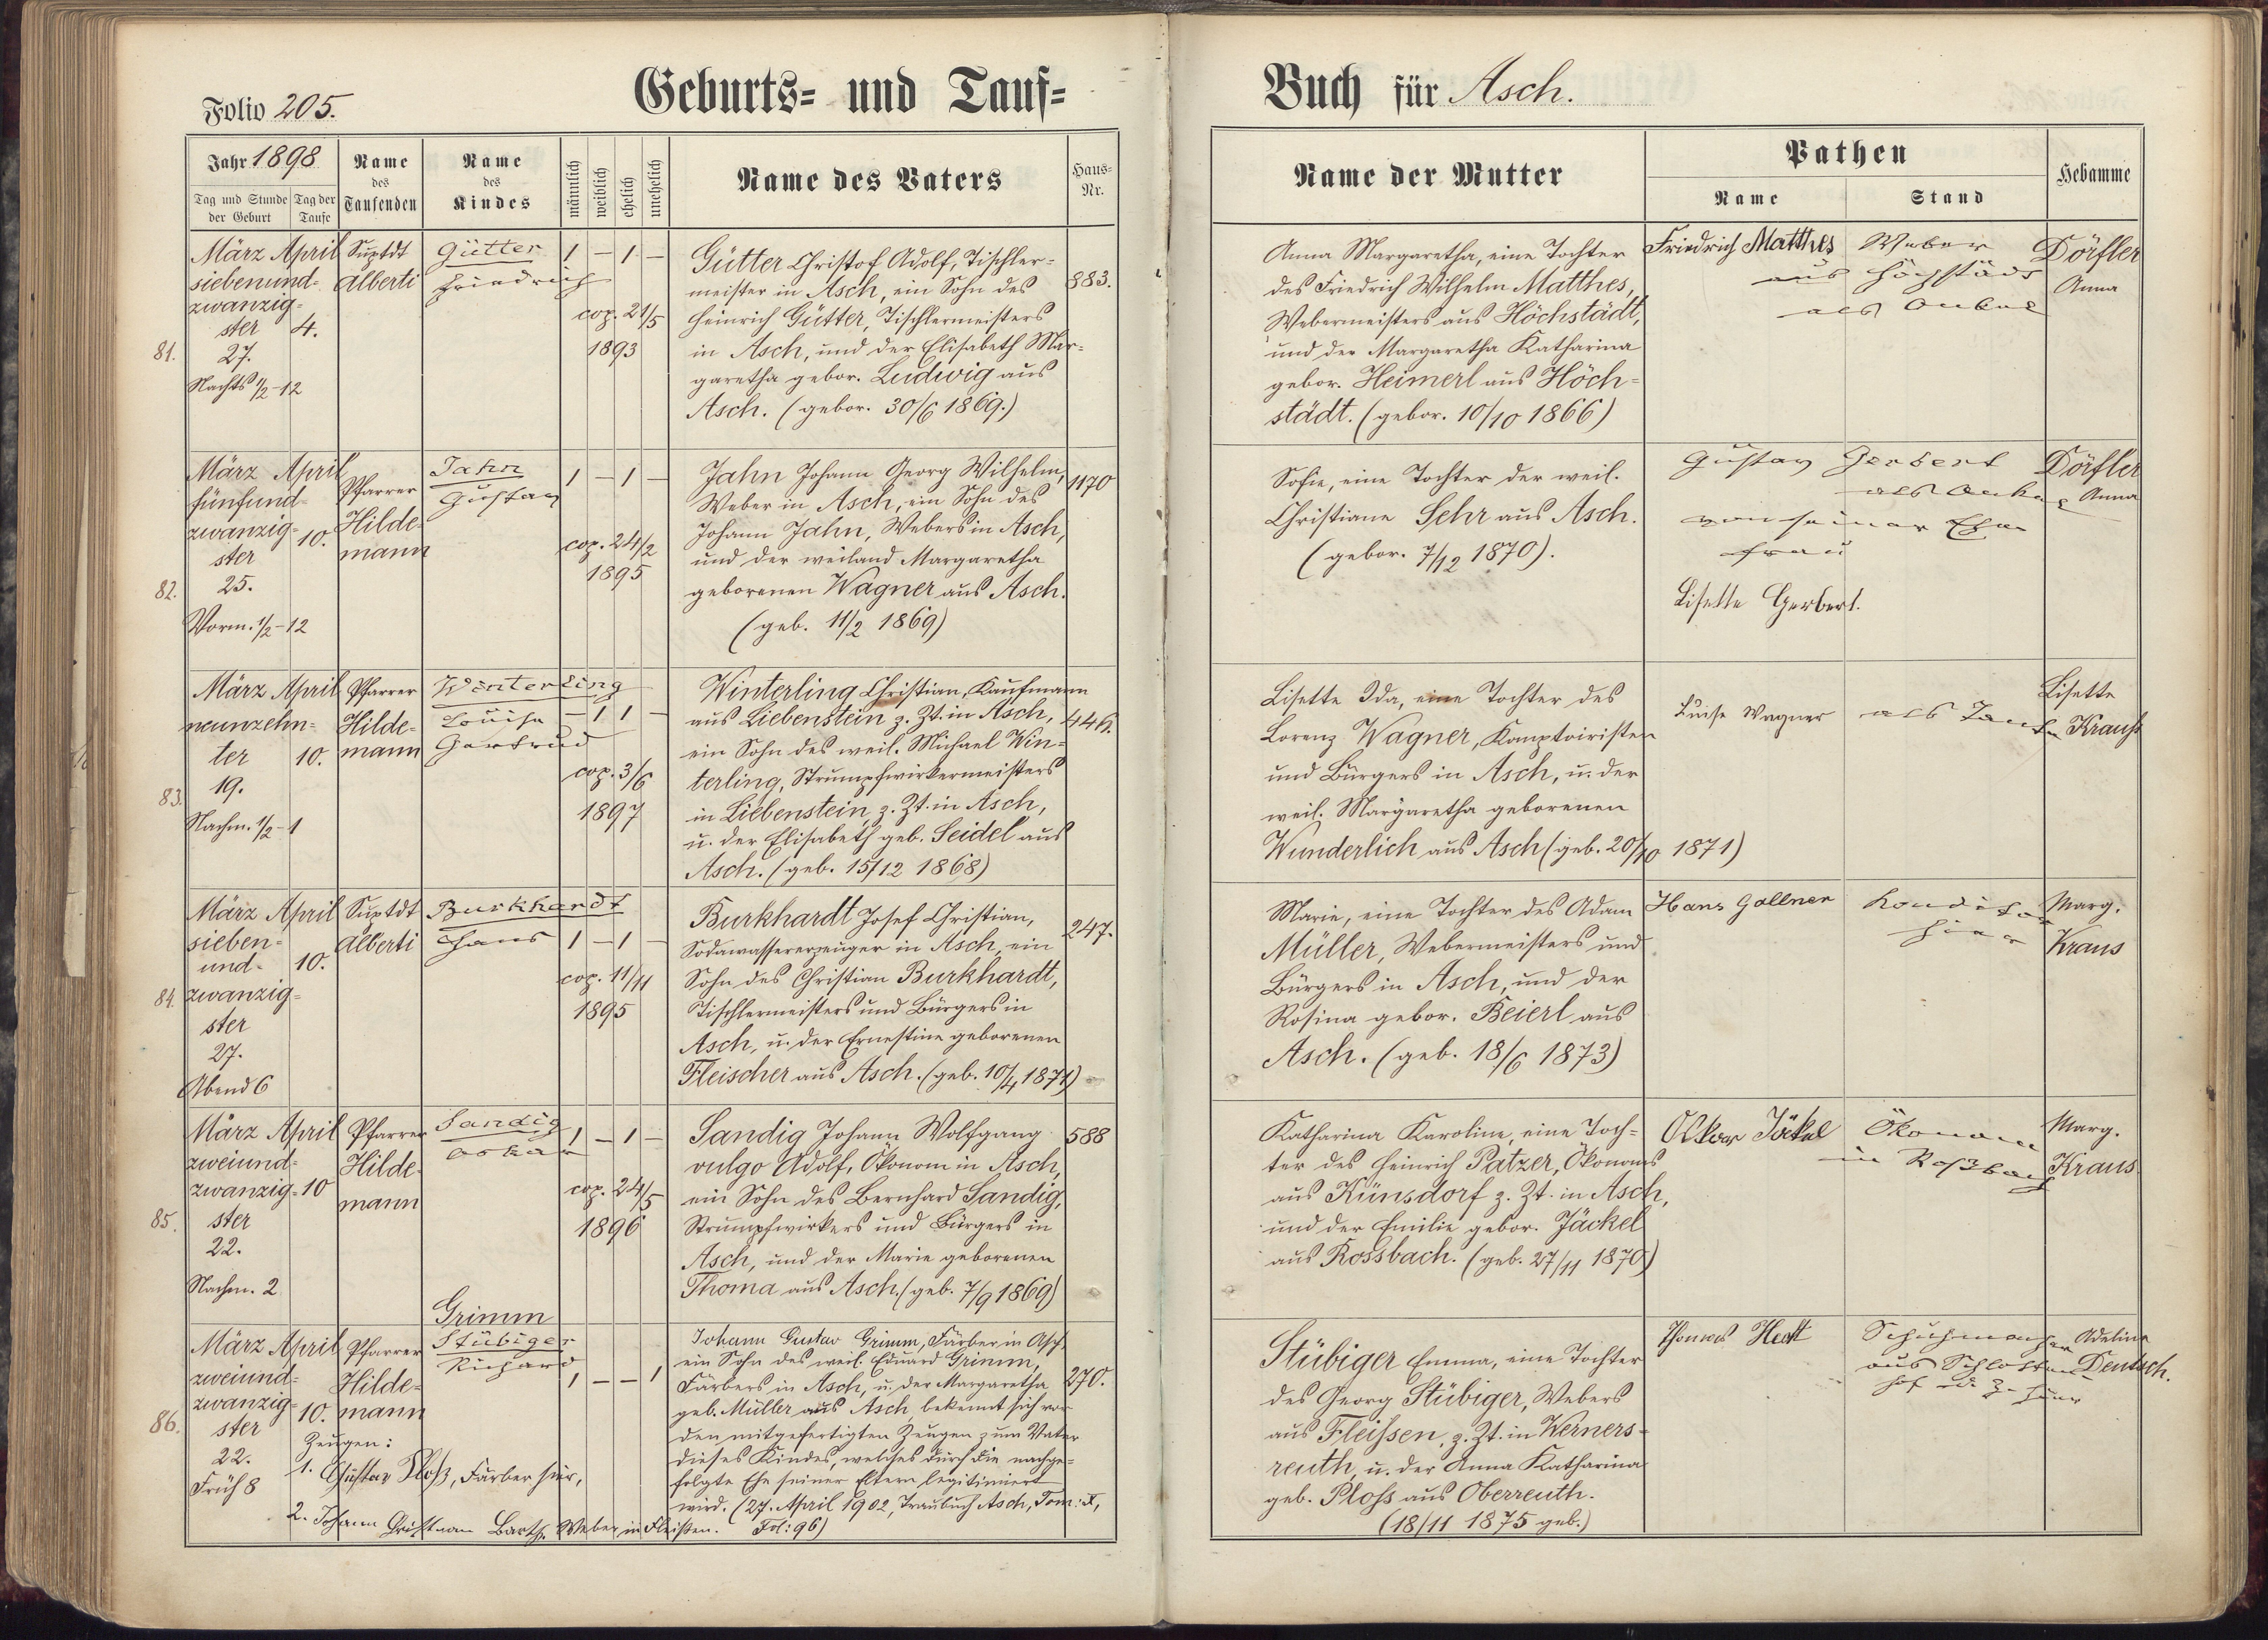 Folio 205.
Geburts- und Tauf-
Buch für Asch.
Jahr 1898
Tag und Stunde der Geburt
Tag der Taufe
Name des Taufenden
Name des Kindes
männlich
weiblich
ehelich
unehelich
Name des Vaters
Haus-Nr.
Name der Mutter
Pathen
Name
Stand
Hebamme
81.
März
siebenund-
zwanzig-
ster
27.
Nachts ½-12
April
4.
Suptdt
Alberti
Gütter
Friedrich
1 – 1 –
cop. 21/5
1893
Gütter Christof Adolf, Tischler-
meister in Asch, ein Sohn des
Heinrich Gütter, Tischlermeisters
in Asch, und der Elisabeth Mar-
garetha gebor. Ludwig aus
Asch. (gebor. 30/6 1869.)
883.
Anna Margaretha, eine Tochter
des Friedrich Wilhelm Matthes,
Webermeisters aus Höchstädt,
und der Margaretha Katharina
gebor. Heimerl aus Höch-
städt. (gebor. 10/10 1866)
Friedrich Matthes
Weber
aus Höchstädt
als Onkel
Dörfler
Anna
82.
März
fünfund-
zwanzig-
ster
25.
Vorm. ½-12
April
10.
Pfarrer
Hilde-
mann
Jahn
Gustav
1 – 1 –
cop. 24/2
1895
Jahn Johann Georg Wilhelm,
Weber in Asch, ein Sohn des
Johann Jahn, Webers in Asch,
und der weiland Margaretha
geborenen Wagner aus Asch.
(geb. 11/2 1869)
1170
Sofie, eine Tochter der weil.
Christiane Sehr aus Asch.
(gebor. 7/12 1870).
Gustav Gerbert
von seiner Ehe
frau
Lisette Gerbert.
Dörfler
Anna
83.
März
neunzehn-
ter
19.
Nachm. ½-1
April
10.
Pfarrer
Hilde-
mann
Winterling
Louise
Gertrud
– 1 1 –
cop. 3/6
1897
Winterling Christian, Kaufmann
aus Liebenstein z. Zt. in Asch,
ein Sohn des weil. Michael Win-
terling, Strumpfwirkermeisters
in Liebenstein, z. Zt. in Asch,
u. der Elisabeth geb. Seidel aus
Asch. (geb. 15/12 1868)
446.
Lisette Ida, eine Tochter des
Lorenz Wagner, Komptoiristen
und Bürgers in Asch, u. der
weil. Margaretha geborenen
Wunderlich aus Asch (geb. 20/10 1871)
Luise Wagner
als Tante
Lisette
Krauß
84.
März
sieben-
und-
zwanzig-
ster
27.
Abend 6
April
10.
Suptdt
Alberti
Burkhardt
Hans
1 – 1 –
cop. 11/11
1895
Burkhardt Josef Christian,
Sodawassererzeuger in Asch, ein
Sohn des Christian Burkhardt,
Tischlermeisters und Bürgers in
Asch, u. der Ernestine geborenen
Fleischer aus Asch. (geb. 10/4 1871)
247.
Marie, eine Tochter des Adam
Müller, Webermeisters und
Bürgers in Asch, und der
Rosina gebor. Beierl aus
Asch. (geb. 18/6 1873)
Hans Gollner
Konditor
hier
Marg.
Kraus
85.
März
zweiund-
zwanzig-
ster
22.
Nachm. 2
April
10
Pfarrer
Hilde-
mann
Sandig
Oskar
1 – 1 –
cop. 24/5
1896
Sandig Johann Wolfgang
vulgo Adolf, Ökonom in Asch,
ein Sohn des Bernhard Sandig,
Strumpfwirkers und Bürgers in
Asch, und der Marie geborenen
Thoma aus Asch. (geb. 7/9 1869)
588
Katharina Karoline, eine Toch-
ter des Heinrich Patzer, Ökonoms
aus Künsdorf z. Zt. in Asch,
und der Emilie gebor. Jäckel
aus Rossbach. (geb. 27/11 1870)
Oskar Jäckel
Ökonom
in Roßbach
Marg.
Kraus
86.
März
zweiund-
zwanzig-
ster
22.
Früh 8
April
10.
Pfarrer
Hilde-
mann
Grimm
Stübiger
Richard
1 – – 1
Johann Gustav Grimm, Färber in Asch
ein Sohn des weil. Eduard Grimm,
Färbers in Asch, u. der Margaretha
geb. Müller aus Asch, bekennt sich vor
den mitgefertigten Zeugen zum Vater
dieses Kindes, welches durch die nachge-
folgte Ehe seiner Eltern legitimiert
wird. (27. April 1902, Traubuch Asch, Tom: X,
Fol: 96)
Zeugen:
1. Gustav Ploß, Färber hier,
2. Johann Christian Barth, Weber in Fleißen.
270.
Stübiger Emma, eine Tochter
des Georg Stübiger, Webers
aus Fleissen, z. Zt. in Werners-
reuth, u. der Anna Katharina
geb. Ploss aus Oberreuth.
(18/11 1875 geb.)
Thomas
Schuhmacher
aus
Adeline
Deutsch.